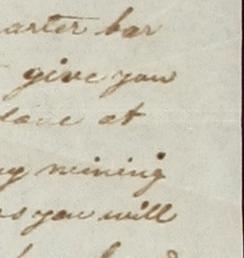 arter bar
give you
lace at
y mining
s you will